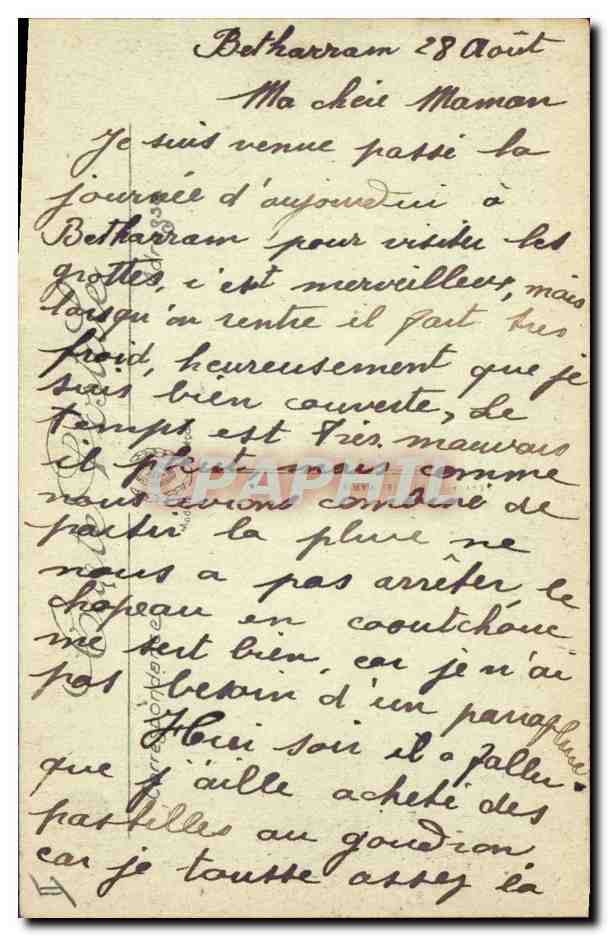 Betharram 28 Août
Ma chère Maman
Je suis venue passé la
journée d'aujourdui à
Betharram pour visiter les
grottes, c'est merveilleux, mais
lorsqu'on rentre il fait très
froid, heureusement que je
suis bien couverte, Le
temps est très mauvais
il pleut mais comme
nous avions combiné de
partir la pluie ne
nous a pas arrêter, le
chapeau en caoutchouc
me sert bien, car je n'ai
pas besoin d'un parapluie.
Hier soir il a fallu
que j'aille acheté des
pastilles au goudron
car je tousse assez la
Carte Postale
Correspondance
Adresse
CPAPHIL